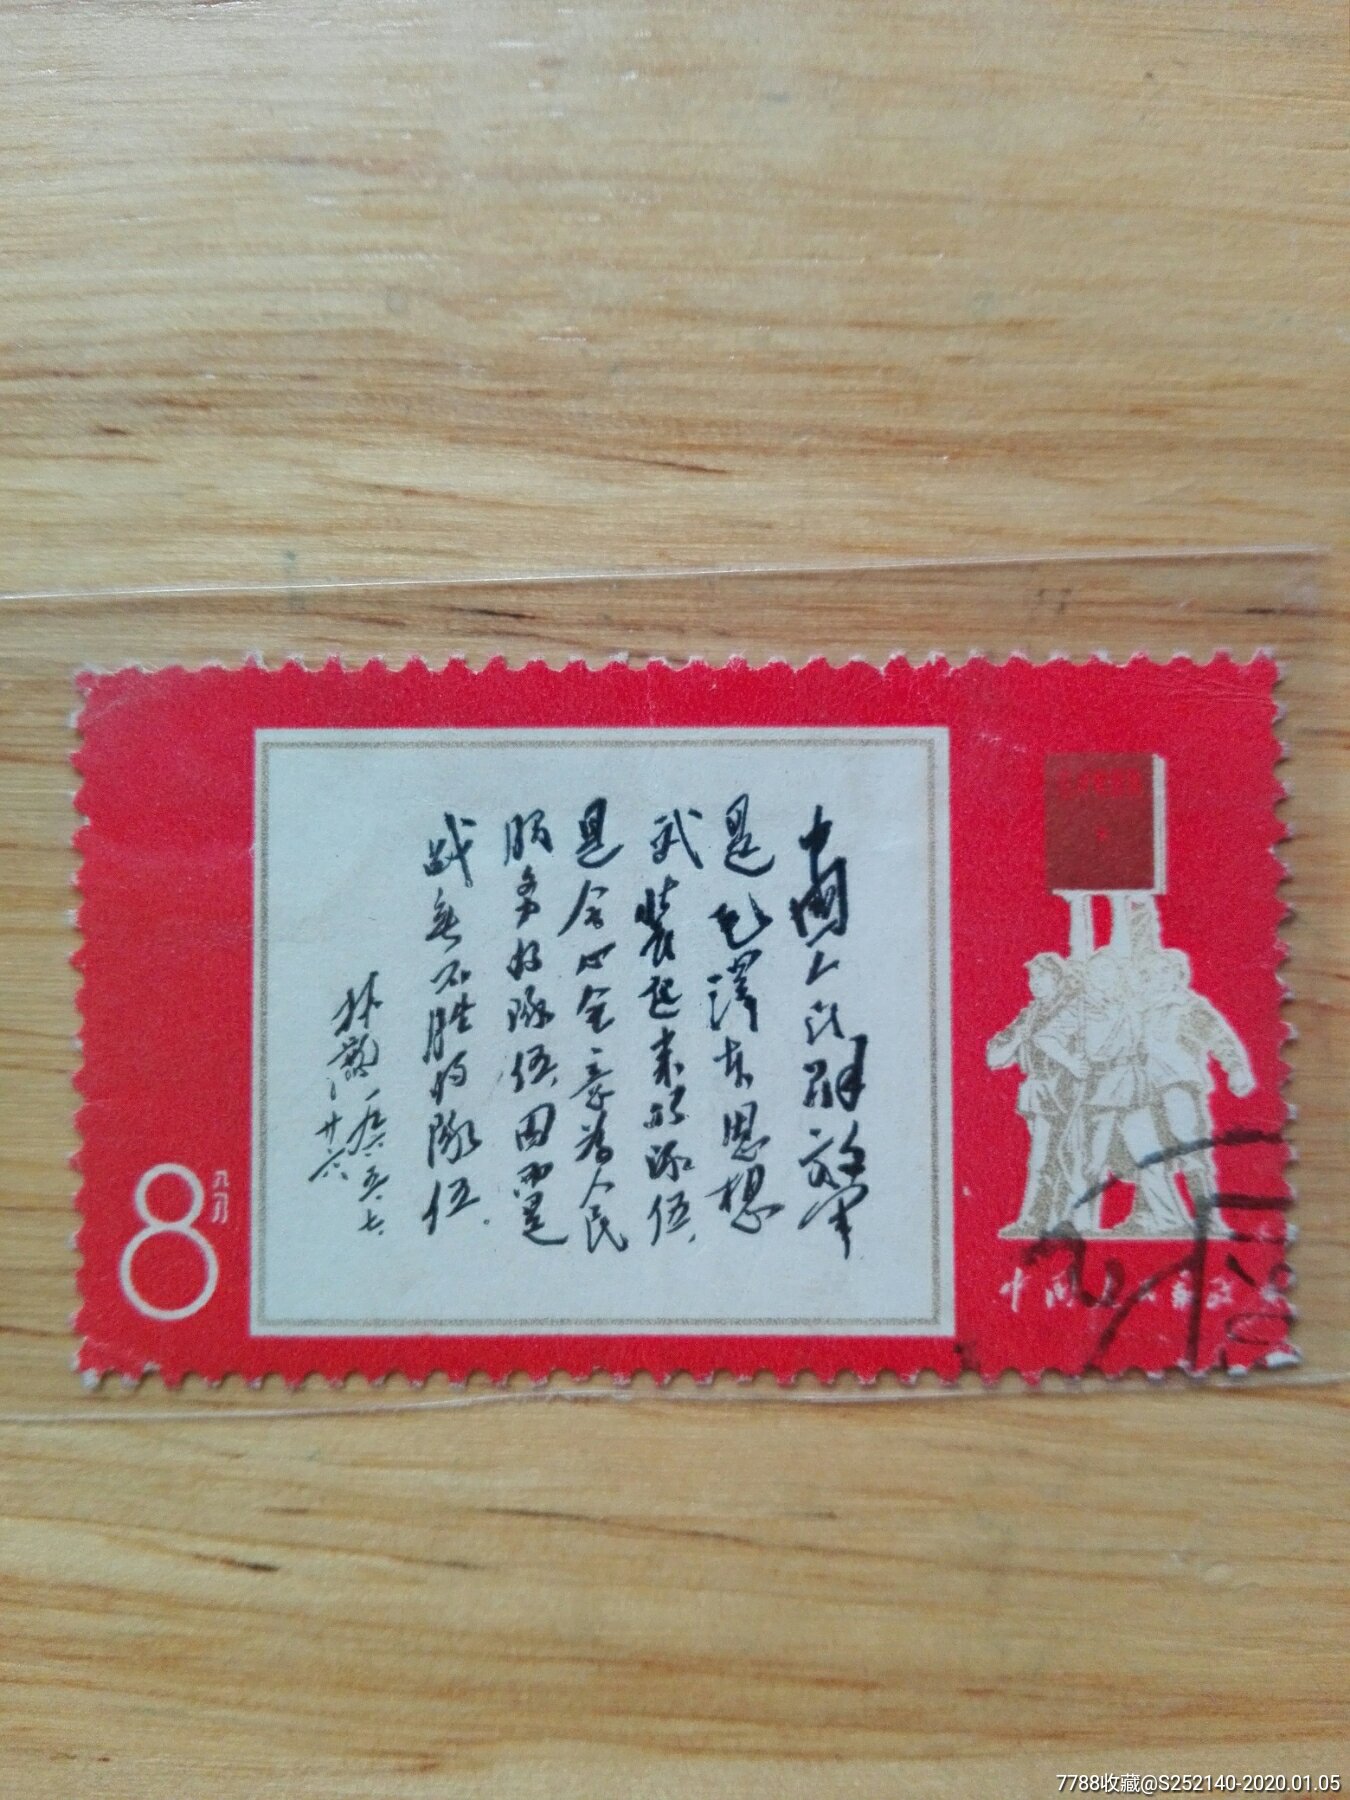 中國人民解放军
是毛澤东思想
武装起来的隊伍,
是全心全意為人民
服务的隊伍,因而是
战無不胜的隊伍.
林彪 一九六五、七、
廿六
8八分
中国人民邮政
7788收藏@S252140-2020.01.05